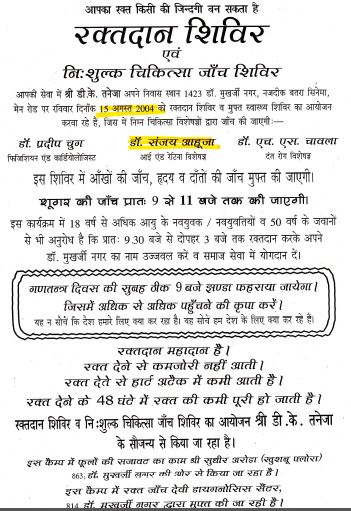 आपका रक्त किसी की जिन्दगी बन सकता है
रक्तदान शिविर
एवं
निःशुल्क चिकित्सा जाँच शिविर
आपकी सेवा में श्री डी.के. तनेजा अपने निवास स्थान 1423 डॉ. मुखर्जी नगर, नजदीक बतरा सिनेमा,
मेन रोड पर रविवार दिनाँक 15 अगस्त 2004 को रक्तदान शिविर व मुफ्त स्वास्थ्य शिविर का आयोजन
करवा रहे है, जिस में निम्न चिकित्सा विशेषज्ञों द्वारा जाँच की जाएगी:—
डॉ. प्रदीप चुग डॉ. संजय आहूजा डॉ. एच. एस. चावला
फिजिशियन एंड कार्डियोलोजिस्ट आई एंड रेटिना विशेषज्ञ दंत रोग विशेषज्ञ
इस शिविर में आँखों की जाँच, हृदय व दाँतों की जाँच मुफ्त की जाएगी।
शूगर की जाँच प्रातः 9 से 11 बजे तक की जाएगी।
इस कार्यक्रम में 18 वर्ष से अधिक आयु के नवयुवक / नवयुवतियों व 50 वर्ष के जवानों
से भी अनुरोध है कि प्रातः 9.30 बजे से दोपहर 3 बजे तक रक्तदान करके अपने
डॉ. मुखर्जी नगर का नाम उज्जवल करें व समाज सेवा में योगदान दें।
गणतन्त्र दिवस की सुबह ठीक 9 बजे झण्डा फहराया जायेगा।
जिसमें अधिक से अधिक पहुँचने की कृपा करें।
यह न सोचें कि देश हमारे लिए क्या कर रहा है। यह सोचे हम देश के लिए क्या कर रहे है।
रक्तदान महादान है।
रक्त देने से कमजोरी नहीं आती।
रक्त देते से हार्ट अटैक में कमी आती है।
रक्त देने के 48 घंटे में रक्त की कमी पूरी हो जाती है।
रक्तदान शिविर व निःशुल्क चिकित्सा जाँच शिविर का आयोजन श्री डी.के. तनेजा
के सौजन्य से किया जा रहा है।
इस कैम्प में फूलों की सजावट का काम श्री सुधीर अरोडा (खुशबू फ्लोरा)
663, डॉ. मुखर्जी नगर की ओर से किया जा रहा है।
इस कैम्प में रक्त जाँच देवी डायगनोसिस सैंटर,
814, डॉ. मुखर्जी नगर द्वारा मुफ्त की जा रही है।